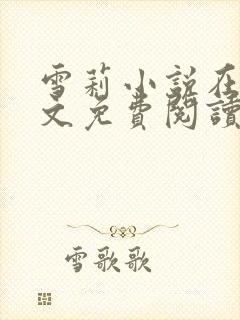 雪莉小說在
文免費閱讀
雪歌歌